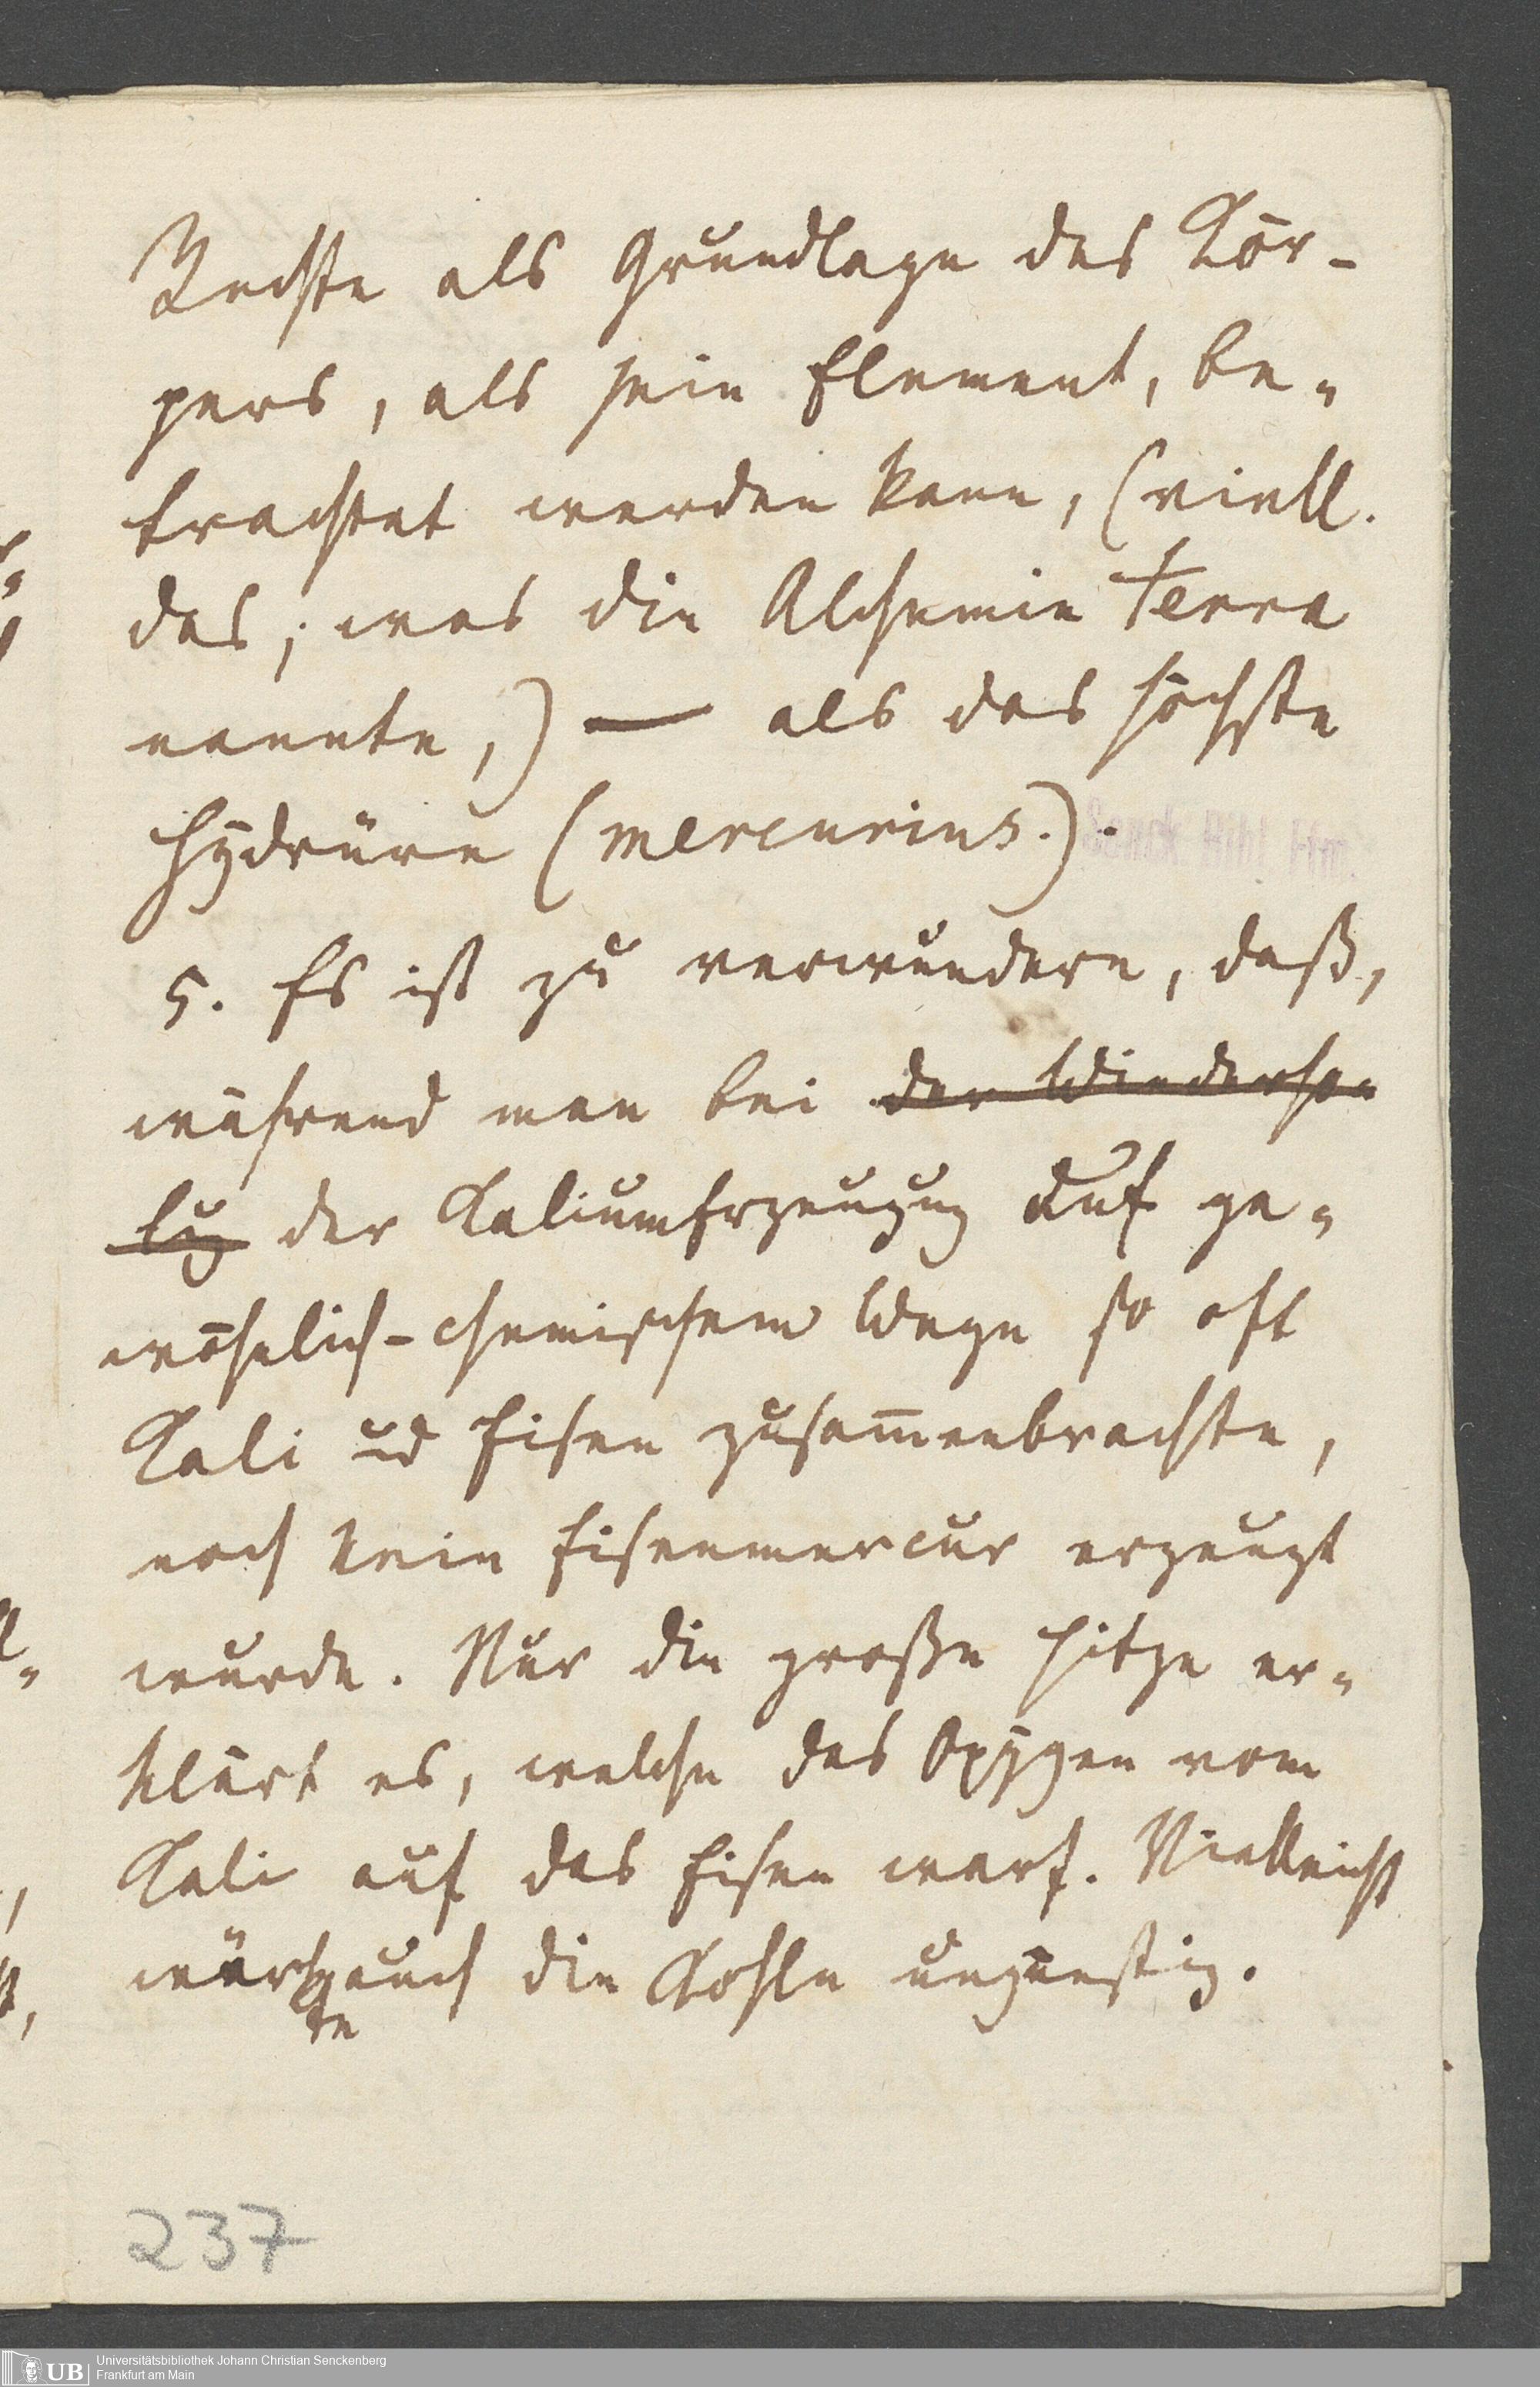 Rechte als Grundlage des Kör-
pers, als sein Element, be-
trachtet werden kann, (viell.
das, was die Alchemie terra
nannte,) — als das höchste
Hydrüre (mercurius.).
5. Es ist zu verwundern, daß,
während man bei der Wiederho-
lug der KaliumErzeugug auf ge-
wöhnlich-chemischem Wege so oft
Kali ud Eisen zusam̅enbrachte,
noch kein Eisenmercur erzeugt
wurde. Nur die große Hitze er-
klärt es, welche das Oxygen vom
Kali auf das Eisen warf. Vielleicht
wär auch die Kohle ungünstig.
te
237
UB
Universitätsbibliothek Johann Christian Senckenberg
Frankfurt am Main